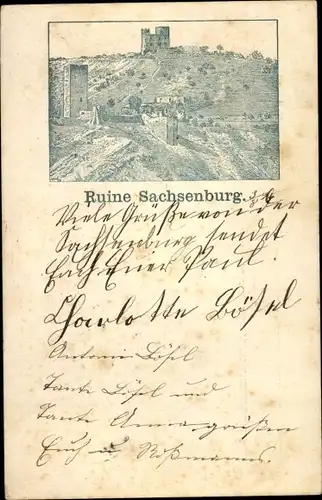 Ruine Sachsenburg.
Viele Grüße von der
Sachsenburg sendet
Euch Euer Paul.
Charlotte Bösel
Antonie Bösel
Tante Bösel und
Tante Anna grüßen
Euch